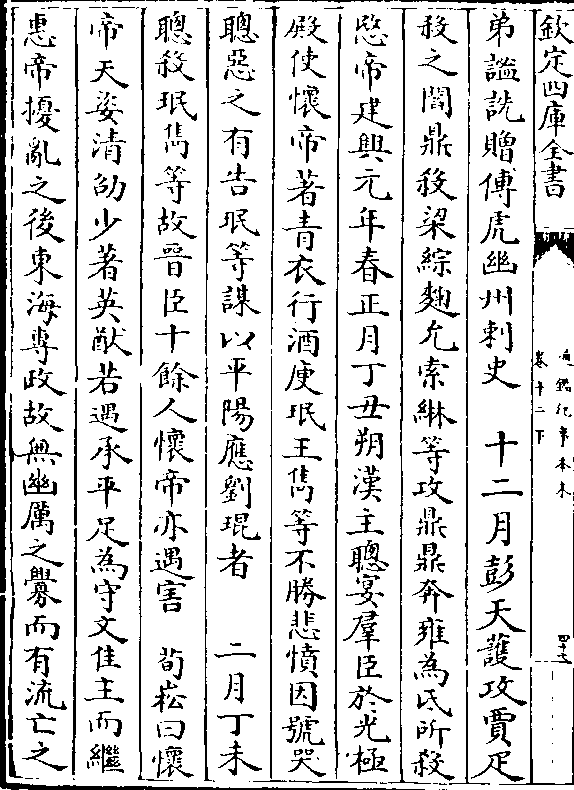 欽定四庫全書
通鑑紀事本末
卷十二下
弟謚詵贈傅虎幽州刺史　十二月彭天護攻賈疋
殺之閻鼎殺梁綜麴允索綝等攻鼎鼎奔雍為氐所殺
愍帝建興元年春正月丁丑朔漢主聰宴羣臣於光極
殿使懷帝著青衣行酒庾珉王雋等不勝悲憤因號哭
聰惡之有告珉等謀以平陽應劉琨者　二月丁未
聰殺珉雋等故晉臣十餘人懷帝亦遇害　荀崧曰懷
帝天姿清劭少著英猷若遇承平足為守文佳主而繼
惠帝擾亂之後東海專政故無幽厲之釁而有流亡之